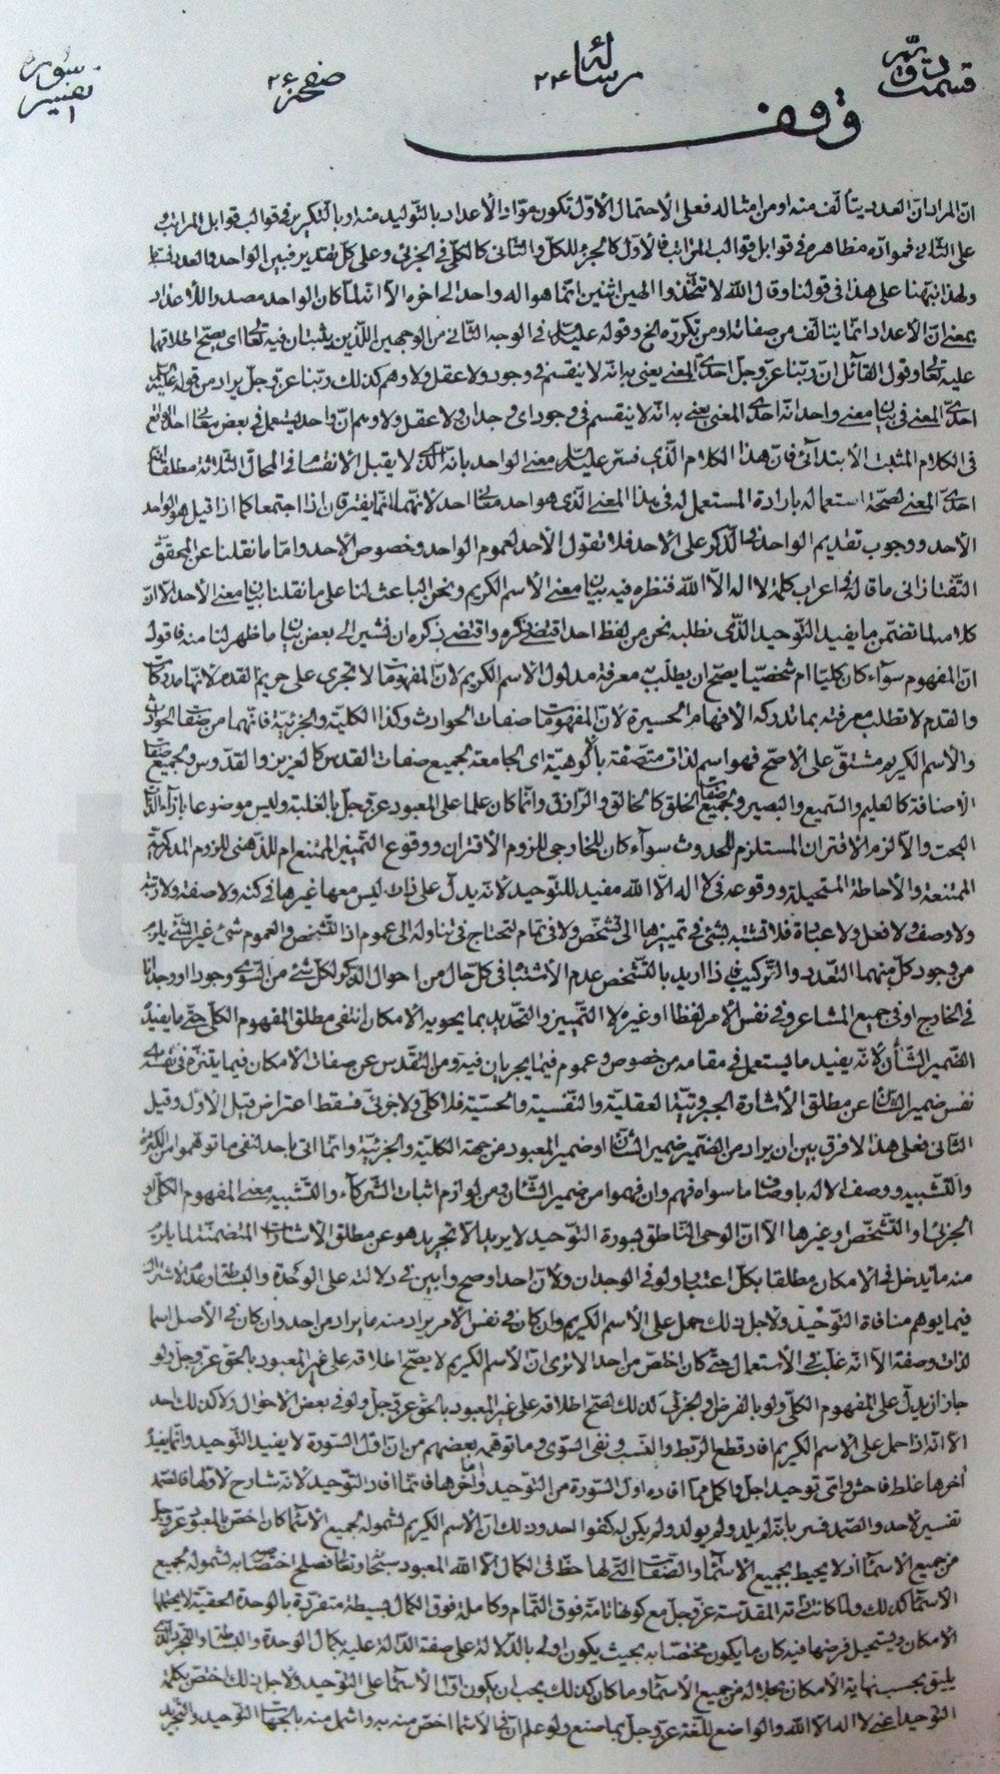 قسمت دويم رسالة ٢٢٤ صفحه ٢٤ تفسير سورة
وقف
انّ المراد انّ العدد يتألّف منه او من امثاله فعلى الاحتمال الأوّل تكون موادّ الأعداد بالتوليد منه او بالتكرير فى قوالب قوابل المراتب
على الثانى فموادّه مظاهره فى قوابل قوالب المراتب فالأوّل كالجزء للكلّ والثانى كالكلّى فى الجزئى وعلى كلّ تقدير فبين الواحد والعدد
ولهذا نبّهنا على هذا فى قولنا وقال الله لا تتّخذوا الهين اثنين انّما هو اله واحد الى اخره الّا انّه لمّا كان الواحد مصدر الأعداد
بمعنى انّ الأعداد انّما يتألّف من صفاته او من تكرّره الخ وقوله عليه السلم فى الوجه الثانى من الوجهين اللذين يثبتان فيه تعالى اى يصحّ اطلاقهما
عليه تعالى وقول القائل انّ ربّنا عزّ وجلّ احدىّ المعنى يعنى به انّه لا ينقسم فى وجود ولا عقل ولا وهم كذلك ربّنا عزّ وجلّ يراد من قوله عليه
احدىّ المعنى فى بيان معنى واحد انّه احدىّ المعنى يعنى به انّه لا ينقسم فى وجود اى وجدان ولا عقل ولا وهم انّ واحد يستعمل فى بعض معانى احد
فى الكلام المثبت الابتدائى فانّ هذا الكلام الّذى فسّر عليه السلم معنى الواحد بانّه الّذى لا يقبل الانقسام فى المحالّ الثلاثة مطلقا
احدىّ المعنى لصحّة استعماله بارادة المستعمل له فى هذا المعنى الّذى هو احد معانى احد لانّهما انّما يفترقان اذا اجتمعا كما اذا قيل هو الواحد
الأحد ووجوب تقديم الواحد فى الذكر على الأحد فلا تقول الأحد لعموم الواحد وخصوص الأحد وامّا ما نقلنا عن المحقّق
التفتازانى ما قاله فى اعراب كلمة لا اله الّا الله فنظره فيه بيان معنى الأسم الكريم ونحن الباعث لنا على ما نقلنا بيان معنى الأحد الّا انّ
كلامه لما تضمّن ما يفيد التوحيد الّذى نطلبه نحن من لفظ احد اقتضى ذكره واقتضى ذكره ان نشير الى بعض بيان ما ظهر لنا منه فاقول
انّ المفهوم سواء كان كليّا ام شخصيّا يصحّ ان يطلب معرفة مدلول الاسم الكريم لانّ المفهومات لا تجرى على حريم القدم لانّها مدركات
والقدم لا تطلب معرفته بما تدركه الأفهام الحسيرة لانّ المفهومات صفات الحوادث وكذا الكليّة والجزئيّة فانّهما من صفات الحوادث
والأسم الكريم مشتقّ على الأصحّ فهو اسم لذات متّصفة بالوهيّة اى الجامعة لجميع صفات القدس كالعزيز والقدّوس ولجميع صفات
الأضافة كالعليم والسميع والبصير ولجميع صفات الخلق كالخالق والرازق وانّما كان علما على المعبود عزّ وجلّ بالغلبة وليس موضوعا بازاء الذات
البحت والّا لزم الاقتران المستلزم للحدوث سواء كان للخارجى للزوم الأقتران ووقوع التمييز الممتنع ام للذهنى للزوم المدركيّة
الممتنعة والأحاطة المستحيلة ووقوعه فى لا اله الّا الله مفيد للتوحيد لانّه يدلّ على ذات ليس معها غيرها فى كنه ولا صفة ولا رتبة
ولا وصف ولا فعل ولا عبادة فلا تشتبه بشئ فى تميّزها الى تشخّص ولا فى تمام لتحتاج فى تناوله الى عموم اذ التشخّص والعموم شئ غير الشئ يلزم
من وجود كلّ منهما التعدد والتركيب اذا اريد بالتشخّص عدم الأشتباه فى كلّ حال من احوال الذكر لكلّ شئ من السوى وجودا او وجدانا
فى الخارج او فى جميع المشاعر وفى نفس الامر لفظا او غيره لا التمييز والتحديد بما يحويه الأمكان انتفى مطلق المفهوم الكلّى حتّى ما يفيد
الضمير الشأن لانّه يفيد ما يستعمل فى مقامه من خصوص وعموم فيما يجريان فيه ومن التقدّس عن صفات الأمكان فيما يتنزّه فى نفسه
نفس ضمير الشأن عن مطلق الأشارة الجبروتيّة العقليّة والنفسية والحسيّة فلا كلّى ولا جزئى فسقط اعتراض قيل الأوّل وقيل
الثانى فعلى هذا لا فرق بين ان يراد من الضمير ضمير الشأن او ضمير المعبود من جهة الكليّة والجزئيّة وانّما اتى باحد لنفى ما توهّموا من الكثرة
والتشبيه ووصف الاله باوصاف ما سواه فهم وان فهموا من ضمير الشأن ومن لوازم اثبات الشركاء والتشبيه معنى المفهوم الكلّى او
الجزئى او التشخّص او غيرها الّا انّ الوحى الناطق بسورة التوحيد لا يريد الّا تجريد هو عن مطلق الأشارات المتضمّنة لما يلزم
منه ما يدخل فى الأمكان مطلقا بكلّ اعتبار ولو فى الوجدان ولأنّ احدا اوضح وابين فى دلالته على الوحدة والبساطة وعدم الاشتراك
فيما يوهم منافاة التوحيد ولاجل ذلك حمل على الأسم الكريم وان كان فى نفس الأمر يراد منه ما يراد من احد وان كان فى الأصل اسما
لذات وصفة الّا انّه غلب فى الأستعمال حتّى كان اخصّ من احد الا ترى انّ الأسم الكريم لا يصحّ اطلاقه على غير المعبود بالحقّ عزّ وجلّ ولو
جاز ان يدلّ على المفهوم الكلّى ولو بالفرض والجزئى كذلك لصحّ اطلاقه على غير المعبود بالحقّ عزّ وجلّ ولو فى بعض الأحوال ولا كذلك احد
الّا انّه اذا حمل على الاسم الكريم افاد قطع الربط والنسب ونفى السوى وما توهّمه بعضهم من انّ اوّل السورة لا يفيد التوحيد وانّما يفيد
اخرها غلط فاحش واىّ توحيد اجلّ واكمل ممّا افاده اوّل السورة من التوحيد وامّا اخرها فانّما افاد التوحيد لانّه شارح لاوّلها فالصمد
تفسير لأحد والصمد فسّر بانّه لم يلد ولم يولد ولم يكن له كفوا احد وذلك انّ الأسم الكريم لشموله لجميع الأسماء كان اخصّ بالمعبود عزّ وجلّ
من جميع الاسماء اذ لا يحيط بجميع الاسماء والصفات الّتى لها حظّ فى الكمال الّا الله المعبود سبحانه وتعالى فصلح اختصاصه به لشموله لجميع
الأسماء كذلك ولمّا كانت ذاته المقدّسة عزّ وجلّ مع كونها تامّة فوق التمام وكاملة فوق الكمال بسيطة متفرّدة بالوحدة الحقيّة لا يحتملها
الأمكان ويستحيل فرضها فيه كان ما يكون مختصّا به بحيث يكون اولى بالدلالة على صفة الدالّة عليه بكمال الوحدة والبساطة والتجريد الّذى
يليق بحسب نهاية الأمكان بجلاله من جميع الأسماء وما كان كذلك يجب ان يكون ادلّ الأسماء على التوحيد ولاجل ذلك اختصّ بكلمة
التوحيد اعنى لا اله الّا الله والواضع للّغة عزّ وجلّ بما صنع ولو علم انّ فى الاسماء اخصّ منه به واشمل منه بالجهات التوحيد والتجريد